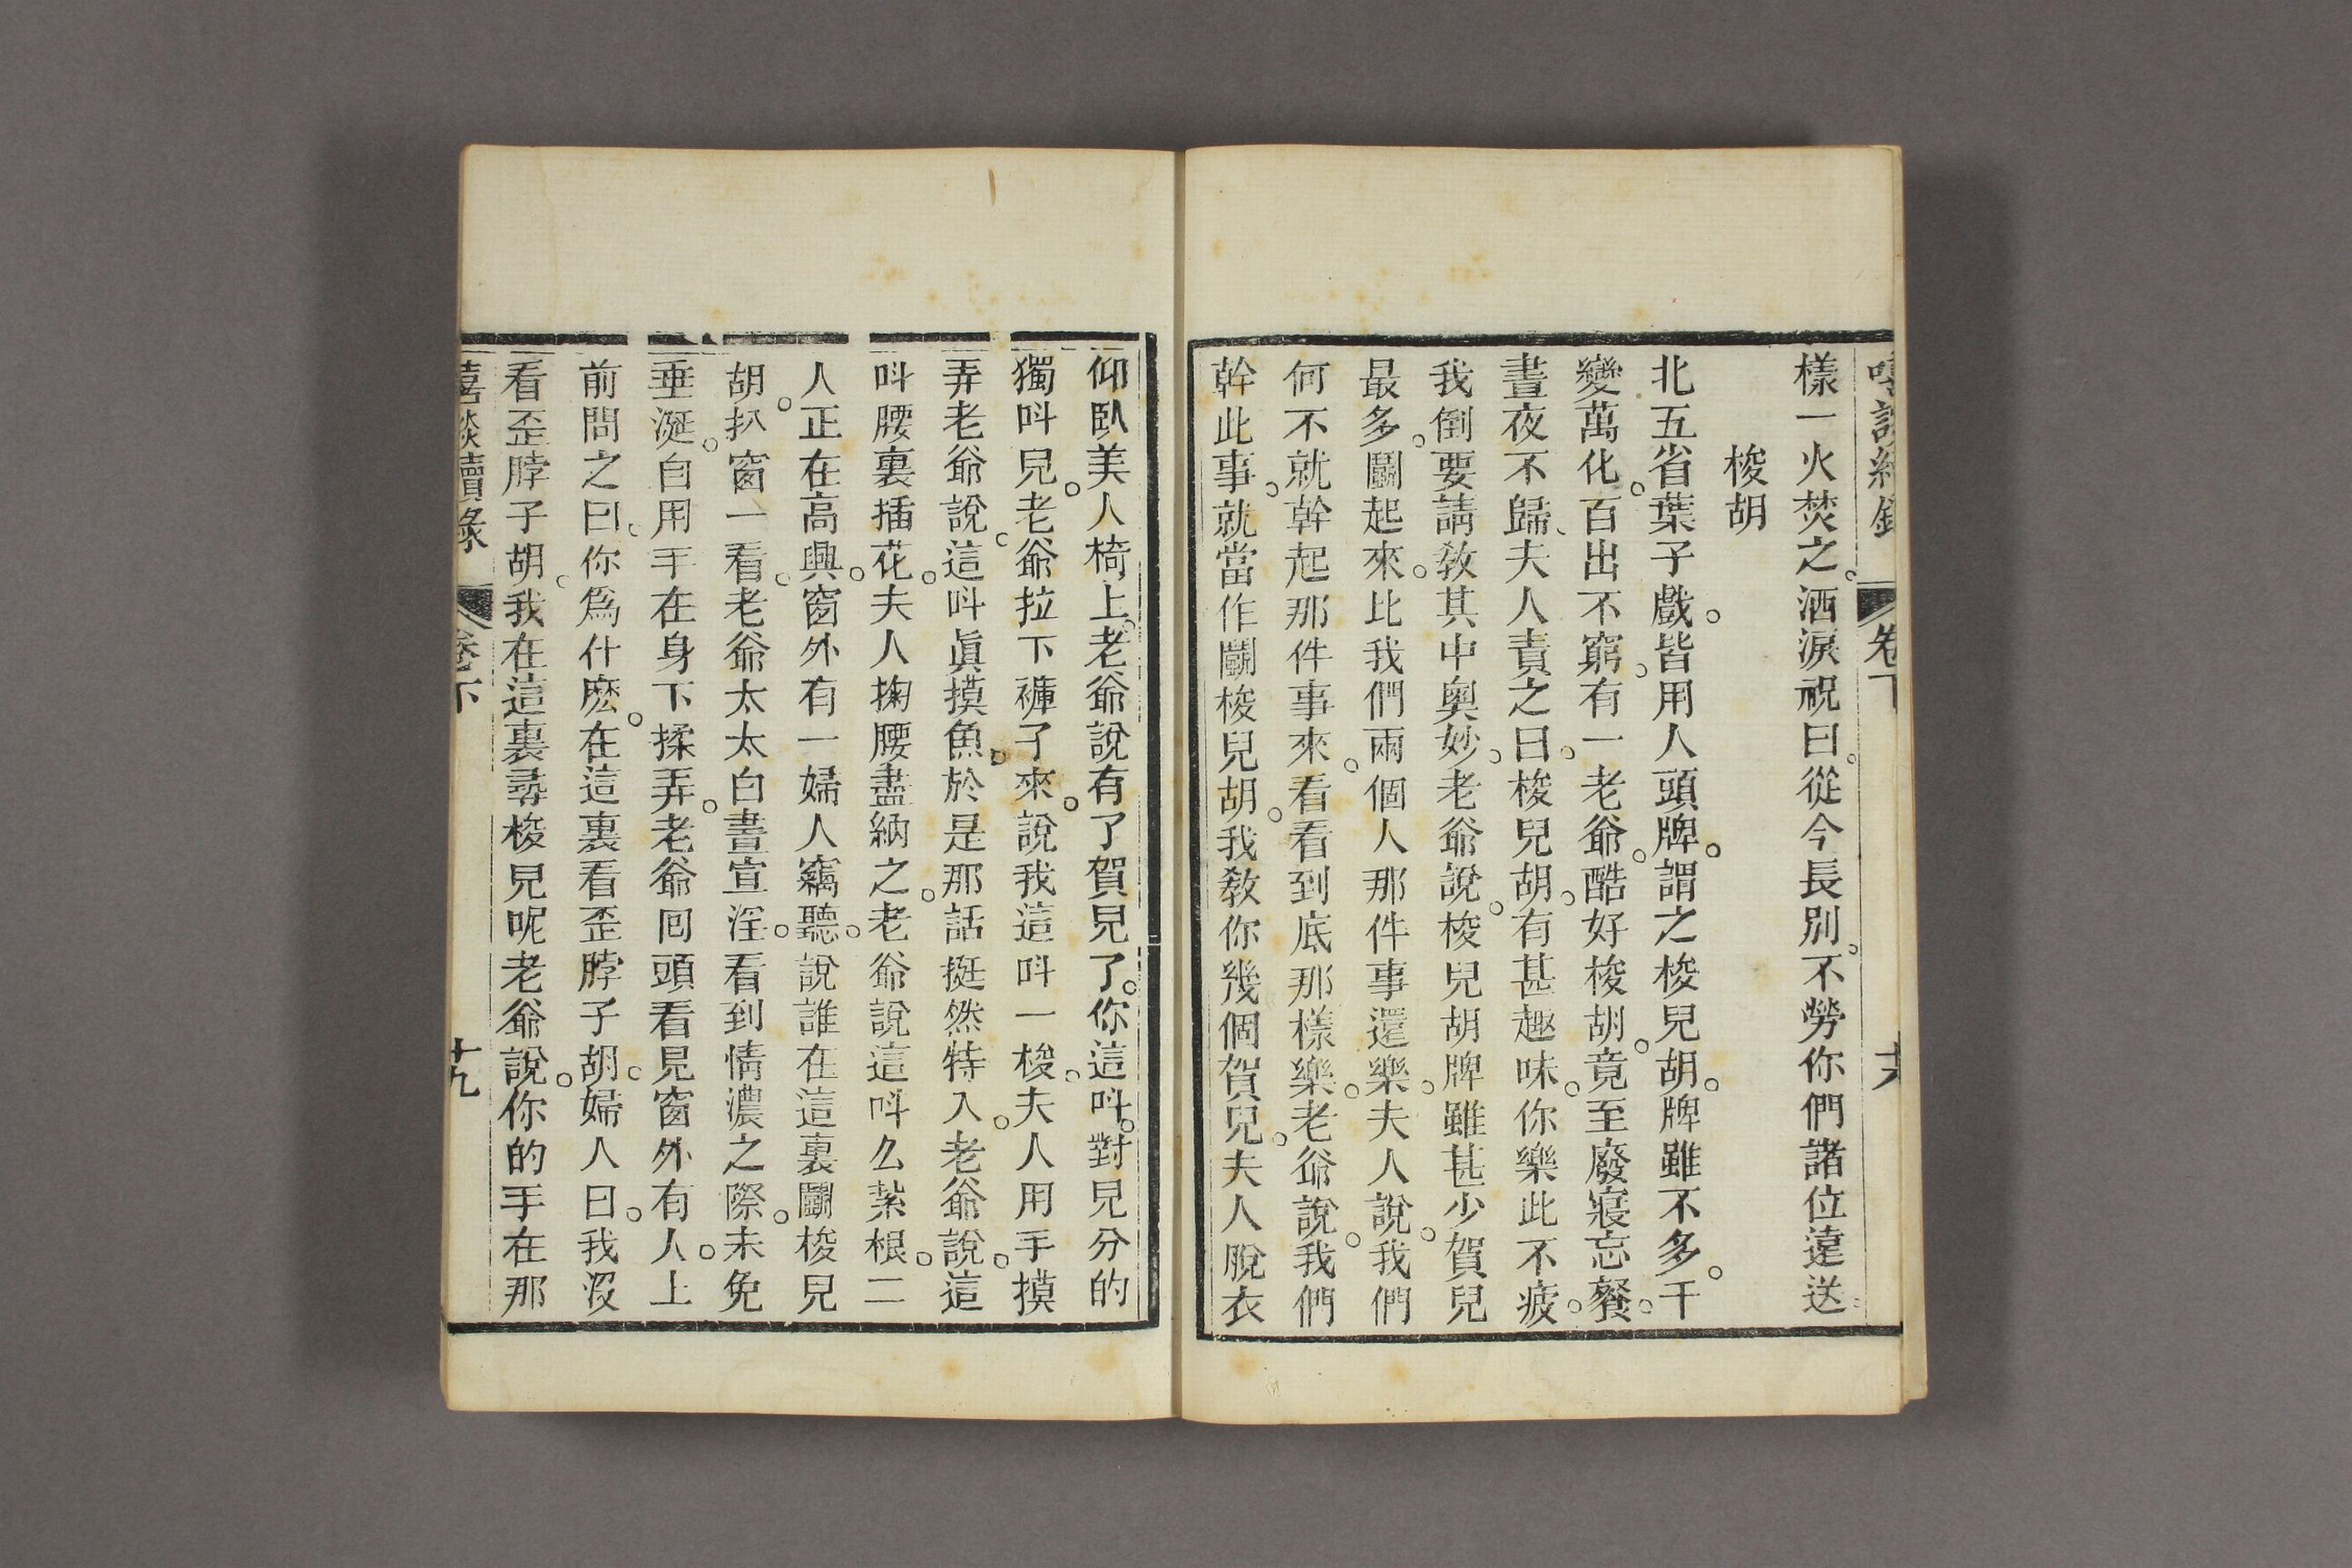 嘻談續錄 卷下 十六
樣一火焚之。洒淚祝曰。從今長別。不勞你們諸位遠送。
梭胡
北五省葉子戲。皆用人頭牌。謂之梭兒胡。牌雖不多。千
變萬化。百出不窮。有一老爺。酷好梭胡。竟至廢寢忘餐。
晝夜不歸、夫人責之曰。梭兒胡。有甚趣味。你樂此不疲。
我倒要請教其中奧妙。老爺說。梭兒胡牌雖甚少賀兒
最多。鬭起來。比我們兩個人那件事還樂。夫人說。我們
何不就幹起那件事來。看看到底那樣樂。老爺說。我們
幹此事。就當作鬭梭兒胡。我教你幾個賀兒。夫人脫衣
仰臥美人椅上。老爺說有了賀兒了。你這呌。對兒分的
獨呌兒。老爺拉下褲了來。說我這呌一梭。夫人用手摸
弄老爺說。這呌眞摸魚。於是那話挺然特入。老爺說。這
呌腰裏插花。夫人掬腰盡納之。老爺說這呌么絜根。二
人正在高興。窗外有一婦人竊聽。說誰在這裏鬭梭兒
胡。扒窗一看。老爺太太白晝宣淫。看到情濃之際。未免
垂涎。自用手在身下揉弄。老爺囘頭看見窗外有人。上
前問之曰。你爲什麽。在這裏看歪脖子胡。婦人曰。我沒
看歪脖子胡。我在這裏尋梭兒呢老爺說。你的手在那
嘻談續錄 卷下 十九